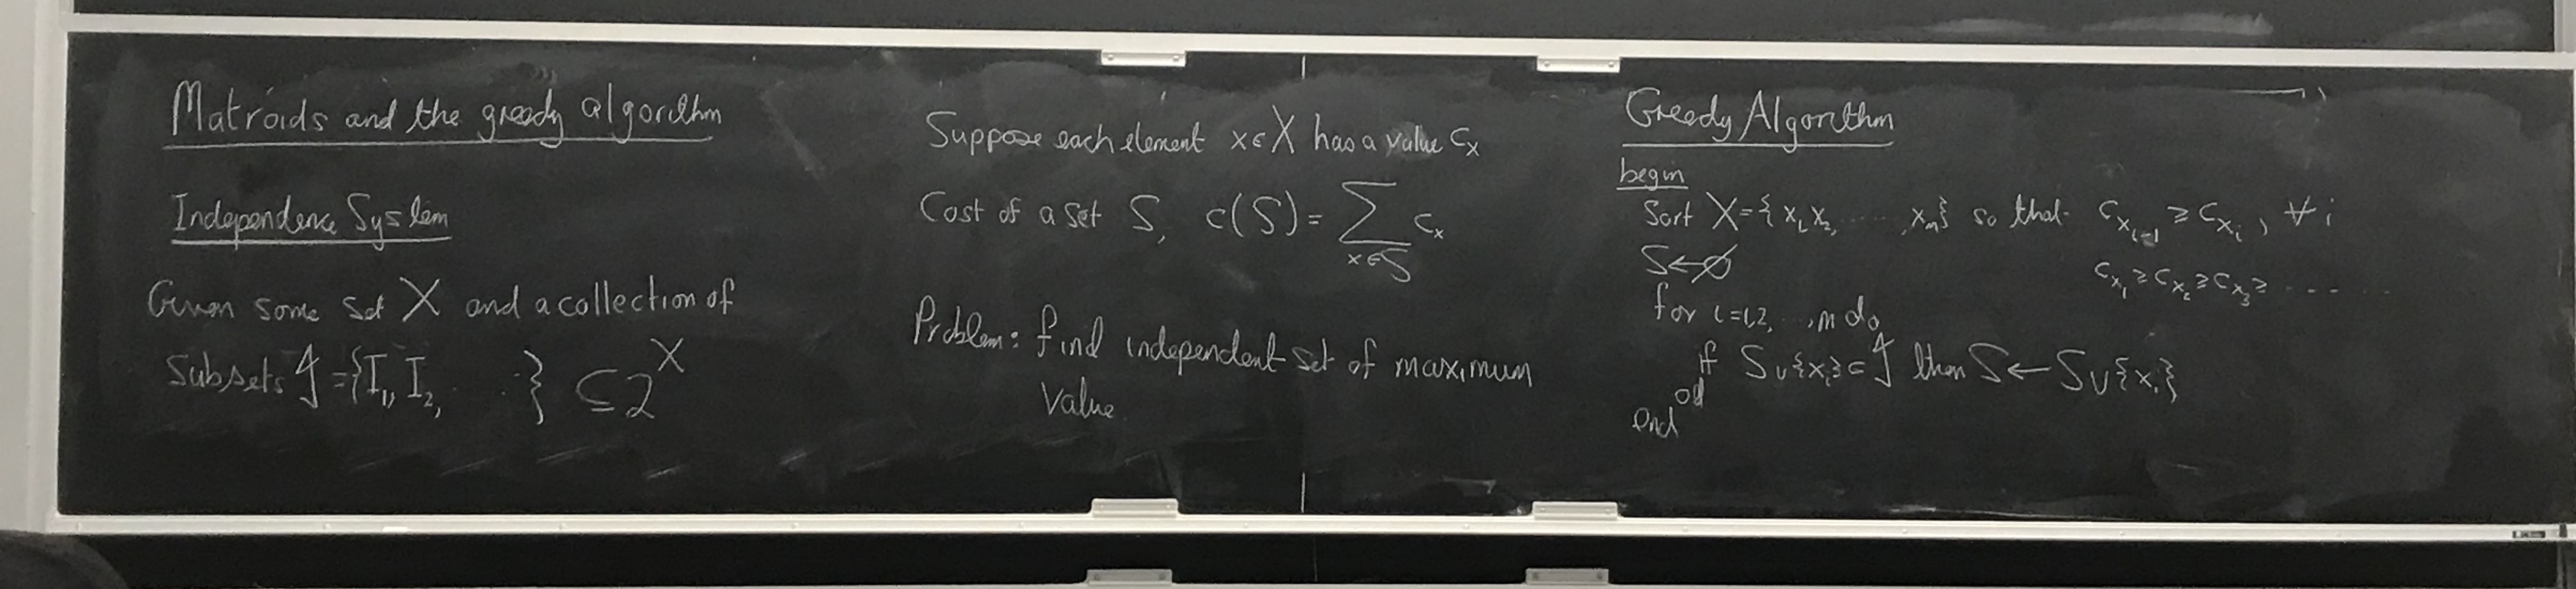 Matroids and the greedy algorithm
Independence System
Given some set X and a collection of
Subsets 𝓘 = {I₁, I₂, ...} ⊆ 2^X
Suppose each element x ∈ X has a value c_x
Cost of a set S, c(S) = ∑_{x∈S} c_x
Problem: find independent set of maximum
value.
Greedy Algorithm
begin
Sort X = {x₁, x₂, ......, x_m} so that c_{x_{i-1}} ≥ c_{x_i}, ∀ i
c_{x₁} ≥ c_{x₂} ≥ c_{x₃} ≥ ......
S ← ∅
for i = 1, 2, ..., m do
if S ∪ {x_i} ∈ 𝓘 then S ← S ∪ {x_i}
od
end